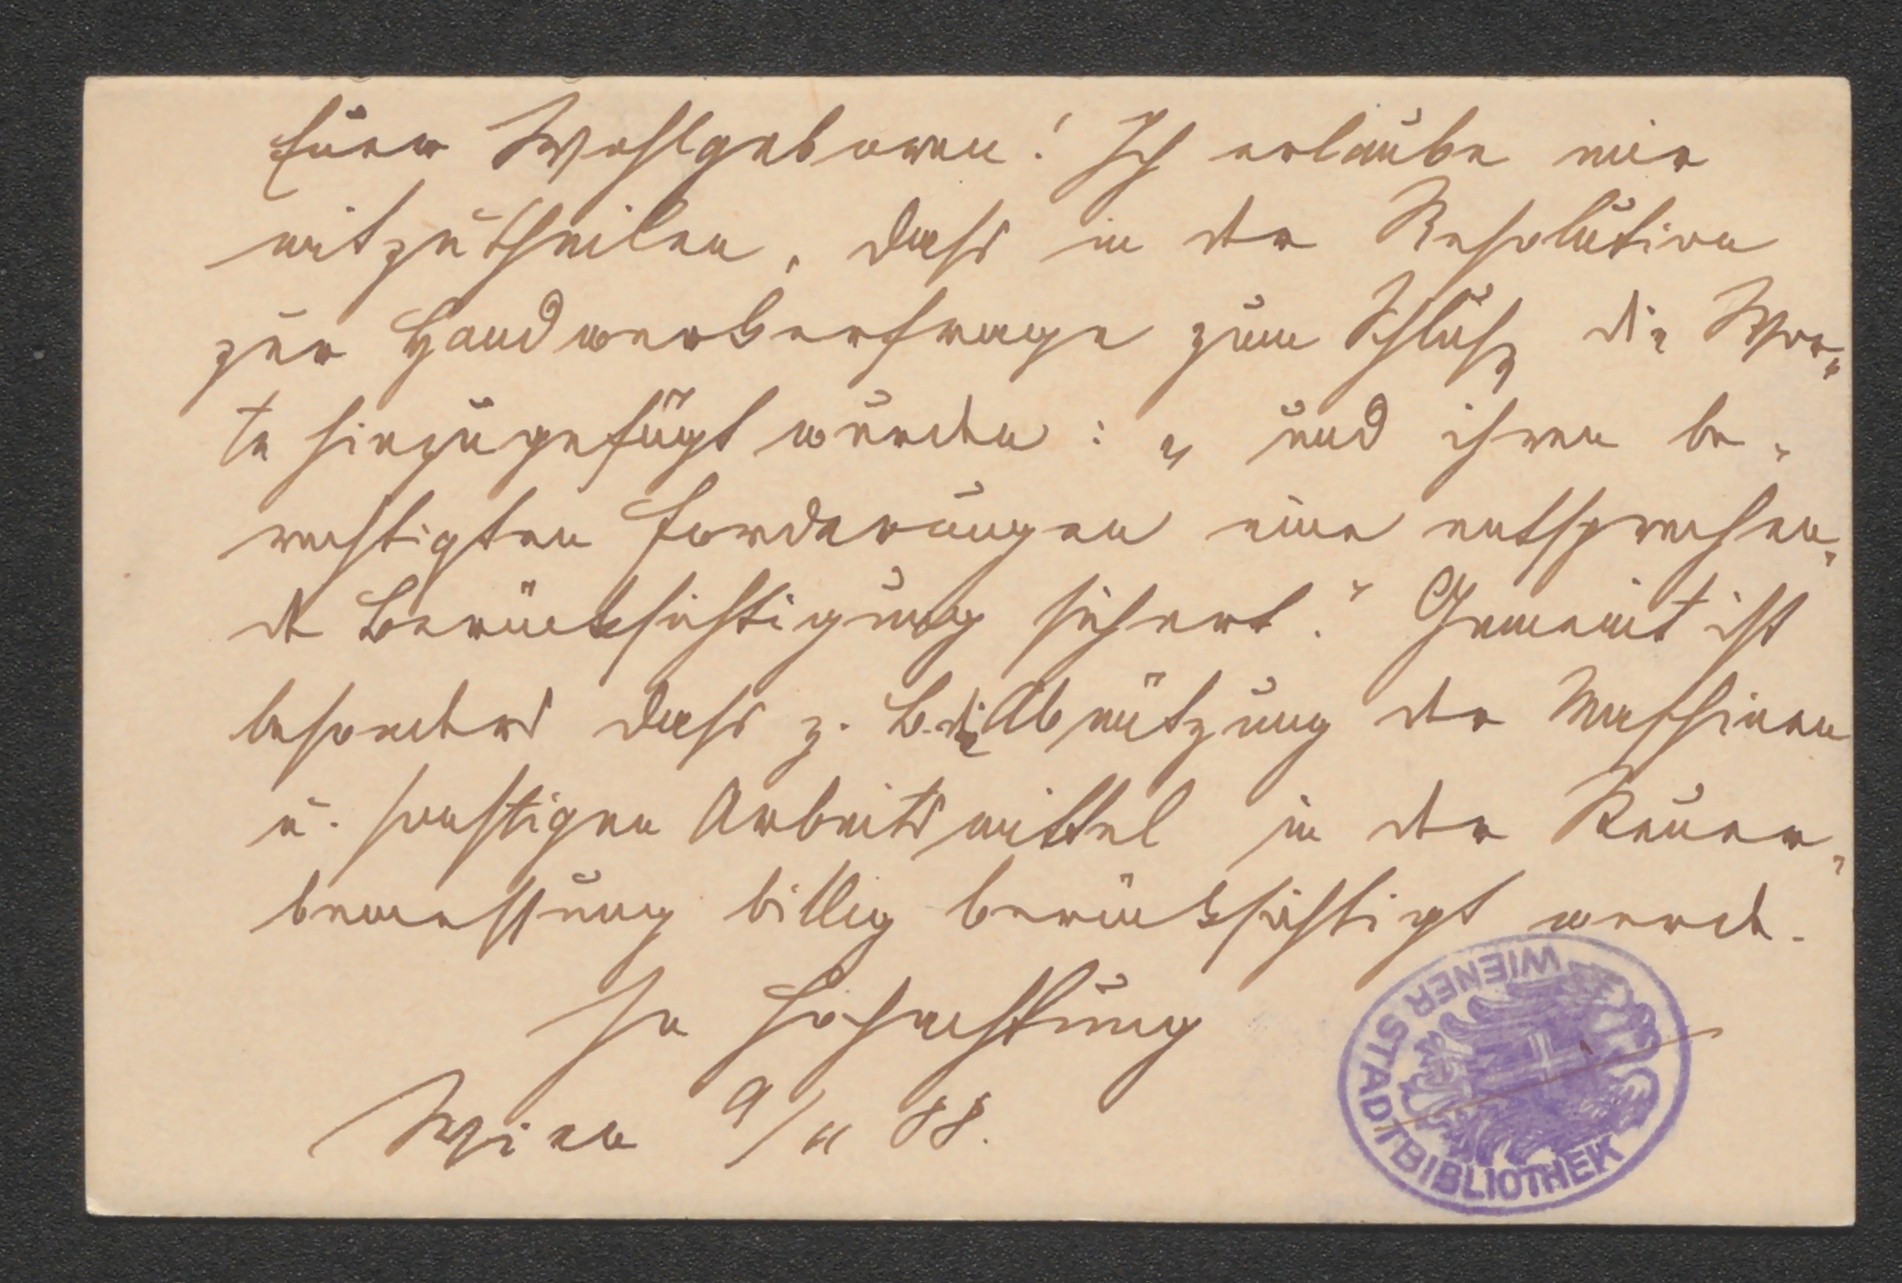 Euer Wohlgeboren! Ich erlaube mir
mitzutheilen, dass in der Resolution
zur Handwerkerfrage zum Schluße die Wor-
te hinzugefügt wurden: „und ihren be-
rechtigten Forderungen eine entsprechen-
de Berücksichtigung sichert." Gemeint ist
besonders dass z. B. die Abnützung der Maschinen
u. sonstigen Arbeitsmittel in der Steuer-
bemessung billig berücksichtigt werde.
In Hochachtung
Wien 9/11 88.
WIENER STADTBIBLIOTHEK